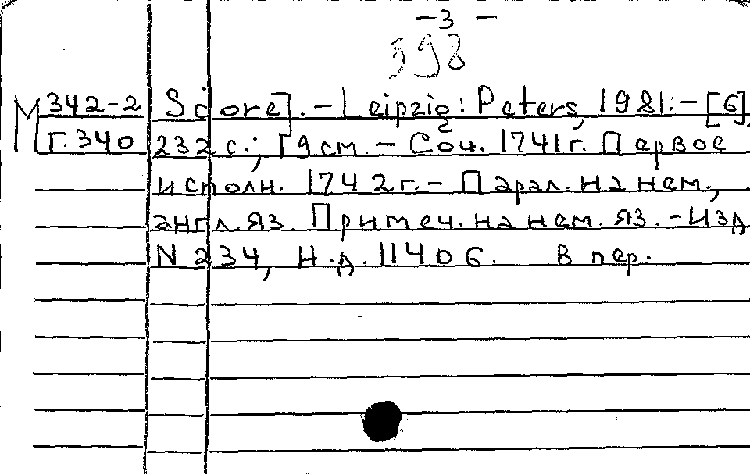 -3-
398
М 342-2 Score]. - Leipzig: Peters, 1981. - [6],
Г.340 232 с.; 19 см. - Соч. 1741 г. Первое
исполн. 1742 г. - Парал. на нем.,
англ. яз. Примеч. на нем. яз. - Изд
N 234, Н.д. 11406. В пер.